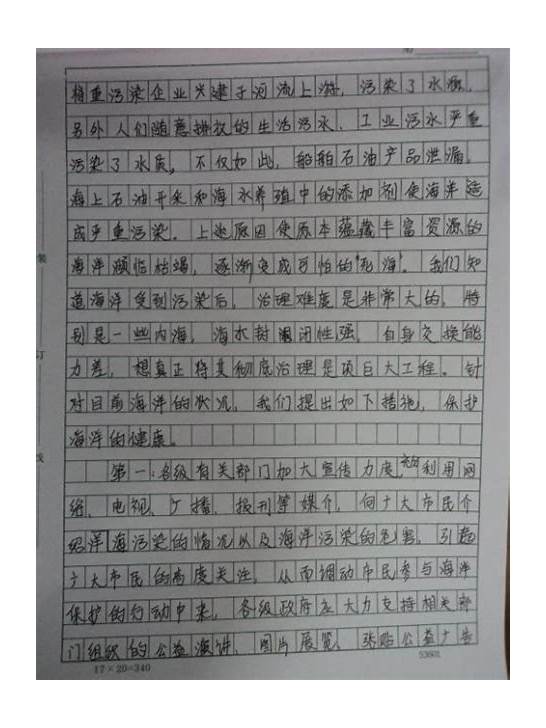 将重污染企业兴建于河流上游，污染了水源，
另外人们随意排放的生活污水、工业污水严重
污染了水质。不仅如此，船舶石油产品泄漏，
海上石油开采和海水养殖中的添加剂使海洋造
成严重污染。上述原因使原本蕴藏丰富资源的
海洋濒临枯竭，逐渐变成可怕的“死海”。我们知
道海洋受到污染后，治理难度是非常大的，特
别是一些内海，海水封闭性强，自身交换能
力差，想真正将其彻底治理是项巨大工程。针
对目前海洋的状况，我们提出如下措施，保护
海洋的健康。
第一：各级有关部门加大宣传力度，充分利用网
络、电视、广播、报刊等媒介，向广大市民介
绍洋海污染的情况以及海洋污染的危害，引起
广大市民的高度关注，从而调动市民参与海洋
保护的行动中来，各级政府应大力支持相关部
门组织的公益演讲、图片展览、张贴公益广告
17×20=340
装
订
线